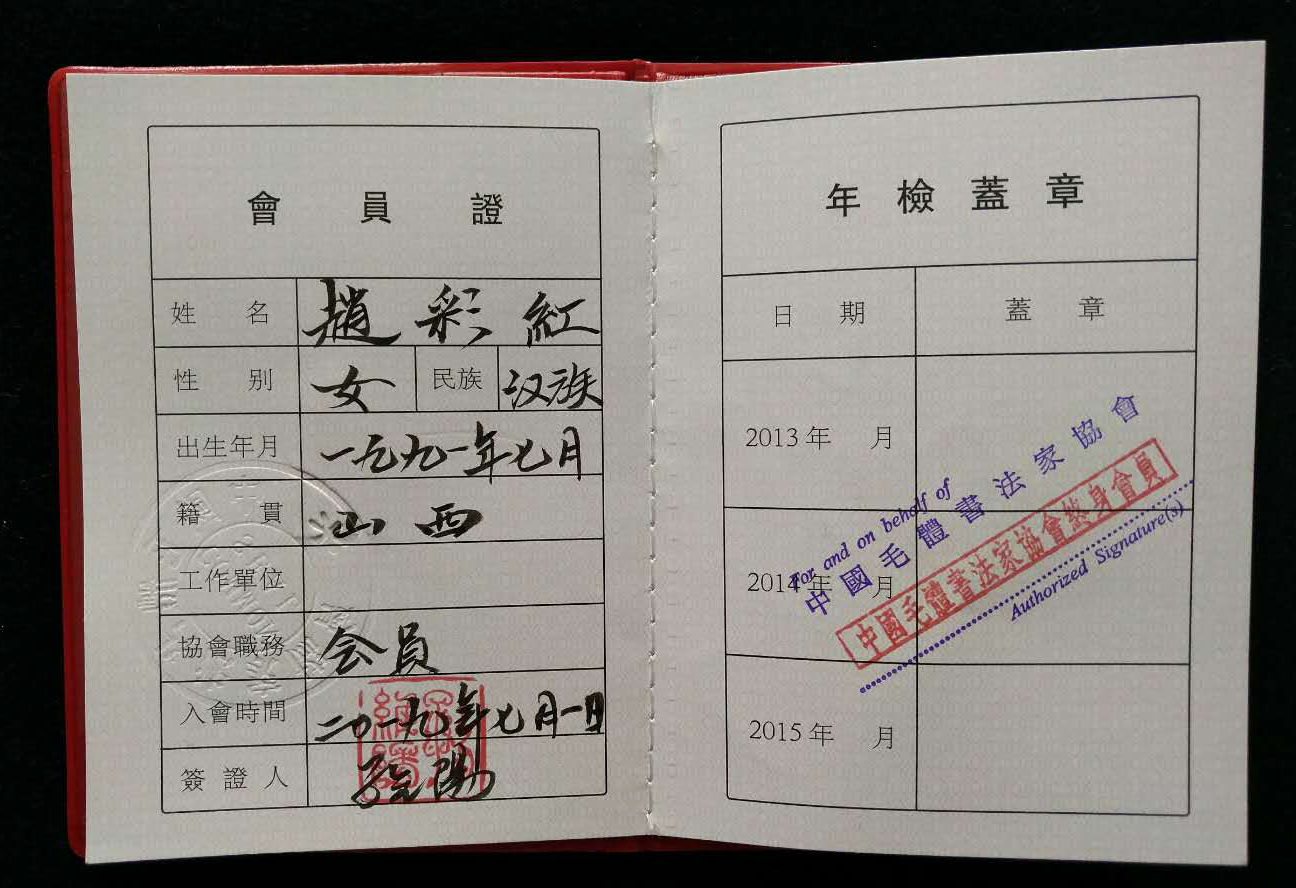 會員證
姓名 趙彩紅
性别 女 民族 汉族
出生年月 一九九一年七月
籍貫 山西
工作單位
協會職務 会員
入會時間 二〇一九年七月一日
簽證人
年檢蓋章
日期 蓋章
2013年 月
2014年 月
2015年 月
For and on behalf of
中國毛體書法家協會
中國毛體書法家協會終身會員
Authorized Signature(s)